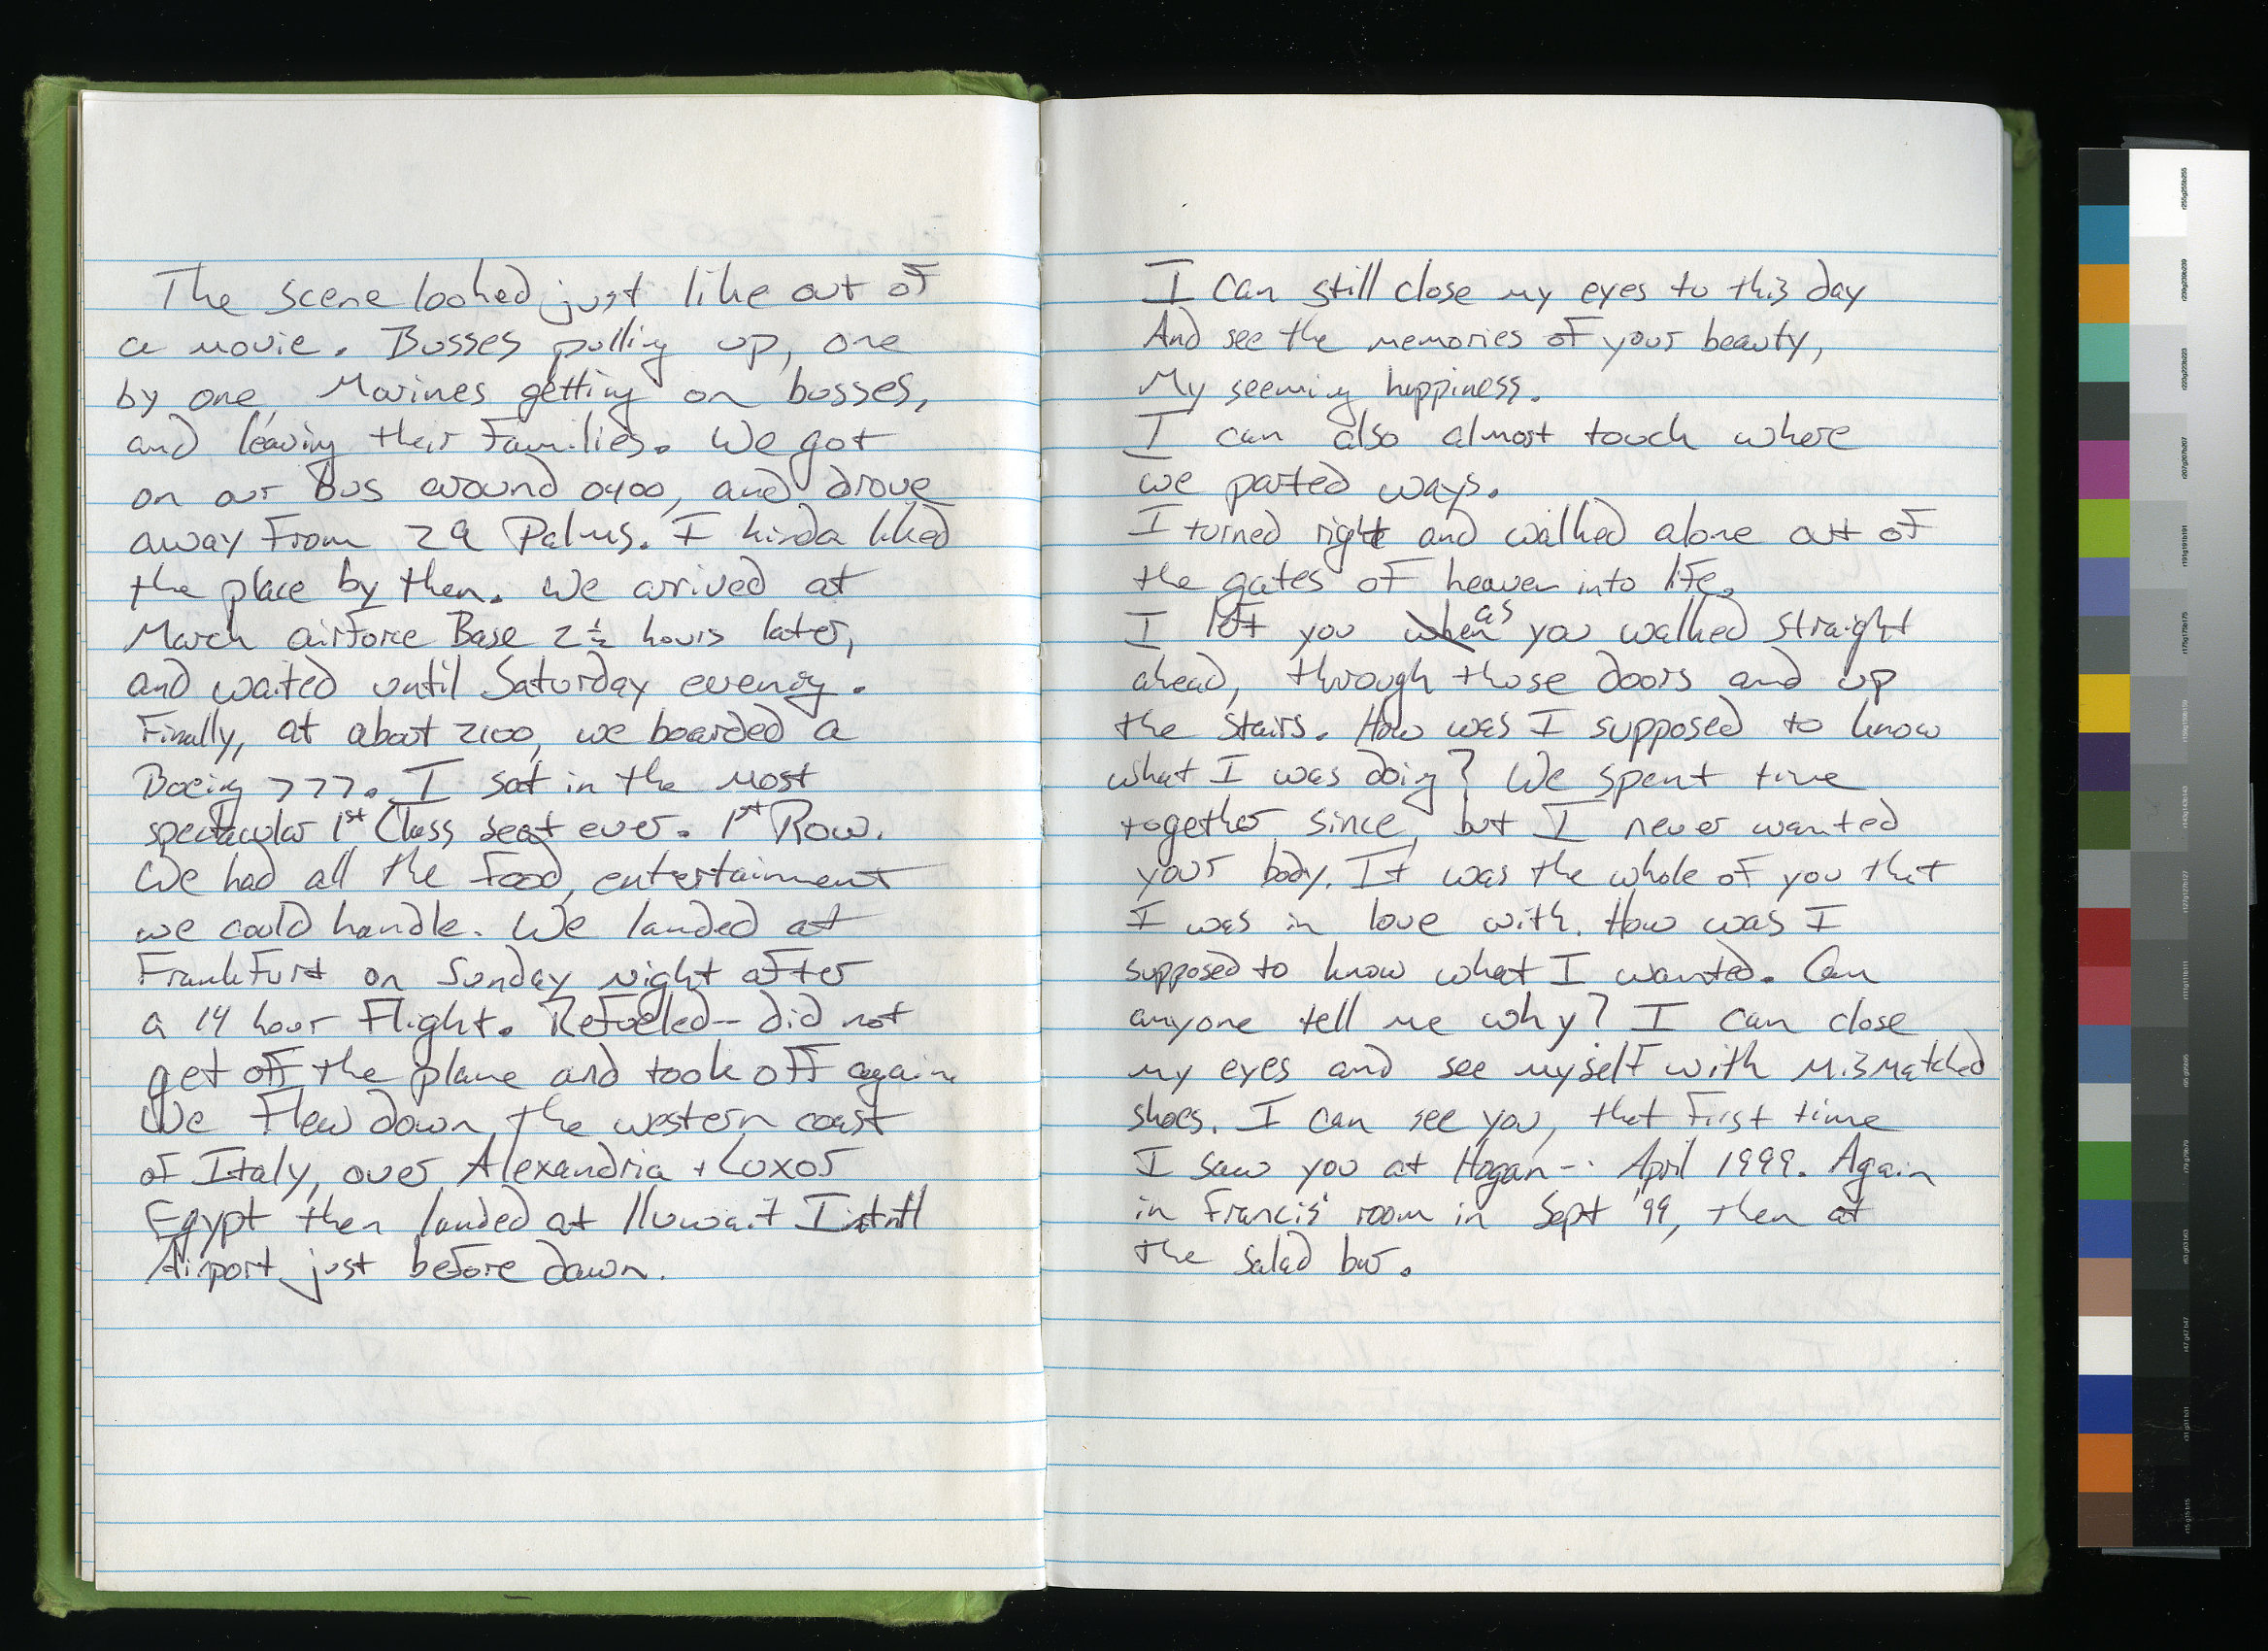 The scene looked just like out of
a movie. Busses pulling up, one
by one, Marines getting on busses,
and leaving their families. We got
on our bus around 0400, and drove
away from 29 Palms. I kinda liked
the place by then. We arrived at
March airforce Base 2 ½ hours later,
and waited until Saturday evening.
Finally, at about 2100, we boarded a
Boeing 777. I sat in the most
spectacular 1st Class seat ever. 1st Row.
We had all the food, entertainment
we could handle. We landed at
Frankfurt on Sunday night after
a 14 hour flight. Refueled - did not
get off the plane and took off again.
We flew down the western coast
of Italy, over Alexandria + Luxor
Egypt then landed at Kuwait Intntl
Airport just before dawn.
I can still close my eyes to this day
And see the memories of your beauty,
My seeming happiness.
I can also almost touch where
we parted ways.
I turned right and walked alone out of
the gates of heaven into life.
I left you when as you walked straight
ahead, through those doors and up
the stairs. How was I supposed to know
what I was doing? We spent time
together since, but I never wanted
your body. It was the whole of you that
I was in love with. How was I
supposed to know what I wanted. Can
anyone tell me why? I can close
my eyes and see myself with mismatched
shoes. I can see you, that first time
I saw you at Hogan - April 1999. Again
in Francis' room in Sept '99, then at
the salad bar.